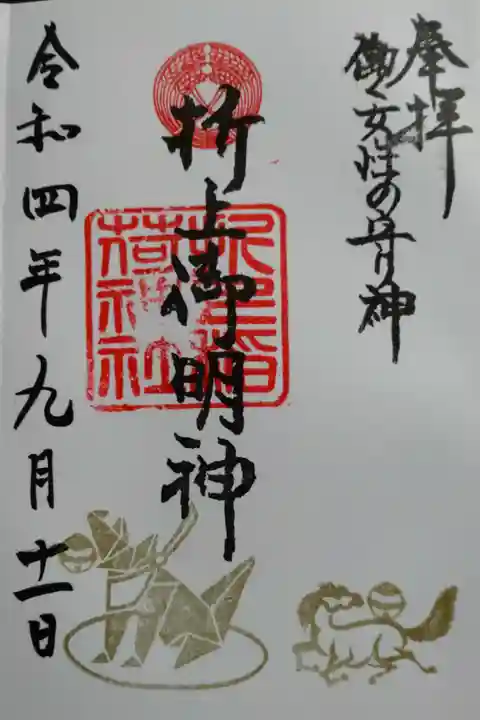 奉拝
働く女性の守り神
折上御明神
令和四年九月十一日